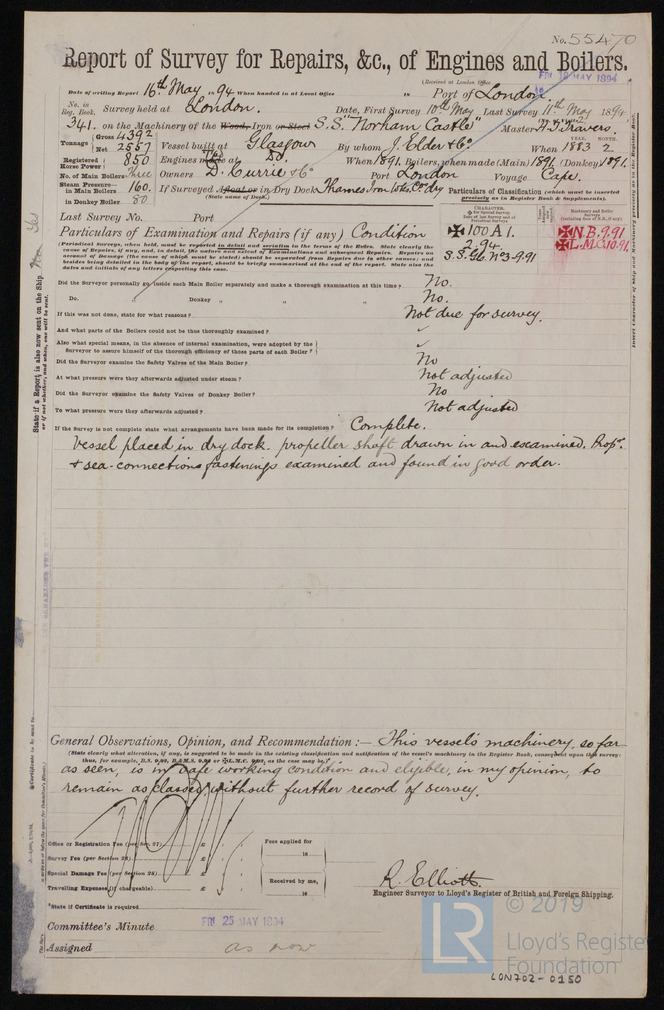 No. 55470
Report of Survey for Repairs, &c., of Engines and Boilers.
(Received at London Office FRI 18 MAY 1894
Date of writing Report 16th May 1894 When handed in at Local Office 18 Port of London
No. in Reg. Book. Survey held at London. Date, First Survey 10th May Last Survey 11th May 1894
341. on the Machinery of the Wood, Iron or Steel S.S. "Norham Castle" Master A. J. Travers.
Tonnage Gross 4392 Net 2557 Vessel built at Glasgow By whom J. Elder & Co. When 1883 2
YEAR. MONTH.
Registered Horse Power 850 Engines made at Do. When 1891. Boilers, when made (Main) 1891. (Donkey) 1891.
No. of Main Boilers Three Owners D. Currie & Co Port London Voyage Cape.
Steam Pressure— in Main Boilers 160. If Surveyed Afloat or in Dry Dock Thames Iron Wks. Co. dry
(State name of Dock.)
in Donkey Boiler 80.
Particulars of Classification (which must be inserted precisely as in Register Book & Supplements).
Last Survey No. Port
Particulars of Examination and Repairs (if any) Condition
(Periodical Surveys, when held, must be reported in detail and seriatim in the terms of the Rules. State clearly the
cause of Repairs, if any, and, in detail, the nature and extent of Examinations and subsequent Repairs. Repairs on
account of Damage (the cause of which must be stated) should be separated from Repairs due to other causes; and
besides being detailed in the body of the report, should be briefly summarised at the end of the report. State also the
dates and initials of any letters respecting this case.)
CHARACTER.
✠ 100 A 1.
2.94
S.S. Glb. No 3-9.91
Machinery and Boiler Surveys
✠N.B. 9.91
✠L.M.C. 10.91.
Did the Surveyor personally go inside each Main Boiler separately and make a thorough examination at this time? No.
Do. Donkey " " " No.
If this was not done, state for what reasons? Not due for survey.
And what parts of the Boilers could not be thus thoroughly examined?
Also what special means, in the absence of internal examination, were adopted by the
Surveyor to assure himself of the thorough efficiency of those parts of each Boiler?
Did the Surveyor examine the Safety Valves of the Main Boiler? No
At what pressure were they afterwards adjusted under steam? Not adjusted
Did the Surveyor examine the Safety Valves of Donkey Boiler? No
To what pressure were they afterwards adjusted? Not adjusted
If the Survey is not complete state what arrangements have been made for its completion? Complete.
Vessel placed in dry dock. propeller shaft drawn in and examined. Propr.
& sea-connections fastenings examined and found in good order.
General Observations, Opinion, and Recommendation:— This vessel's machinery, so far
(State clearly what alteration, if any, is suggested to be made in the existing classification and notification of the vessel's machinery in the Register Book, consequent upon this survey:
thus, for example, B.S. 9.93, B.&M.S. 9.93 or ✠L.M.C. 9.93, as the case may be.)
as seen, is in safe working condition and eligible, in my opinion, to
remain as classed without further record of survey.
Office or Registration Fee (per Sec. 27) £
Survey Fee (per Section 28) £
Special Damage Fee (per Section 28) £
Travelling Expenses (if chargeable) £
Fees applied for
18
Received by me,
18
*State if Certificate is required
R. Elliott.
Engineer Surveyor to Lloyd's Register of British and Foreign Shipping.
Committee's Minute FRI 25 MAY 1894
Assigned as now
State if a Report is also now sent on the Ship.
or if not whether, and when, one will be sent.
Insert Character of Ship and Machinery precisely as in the Register Book.
© 2019
LR
Lloyd's Register
Foundation
LON702-0150